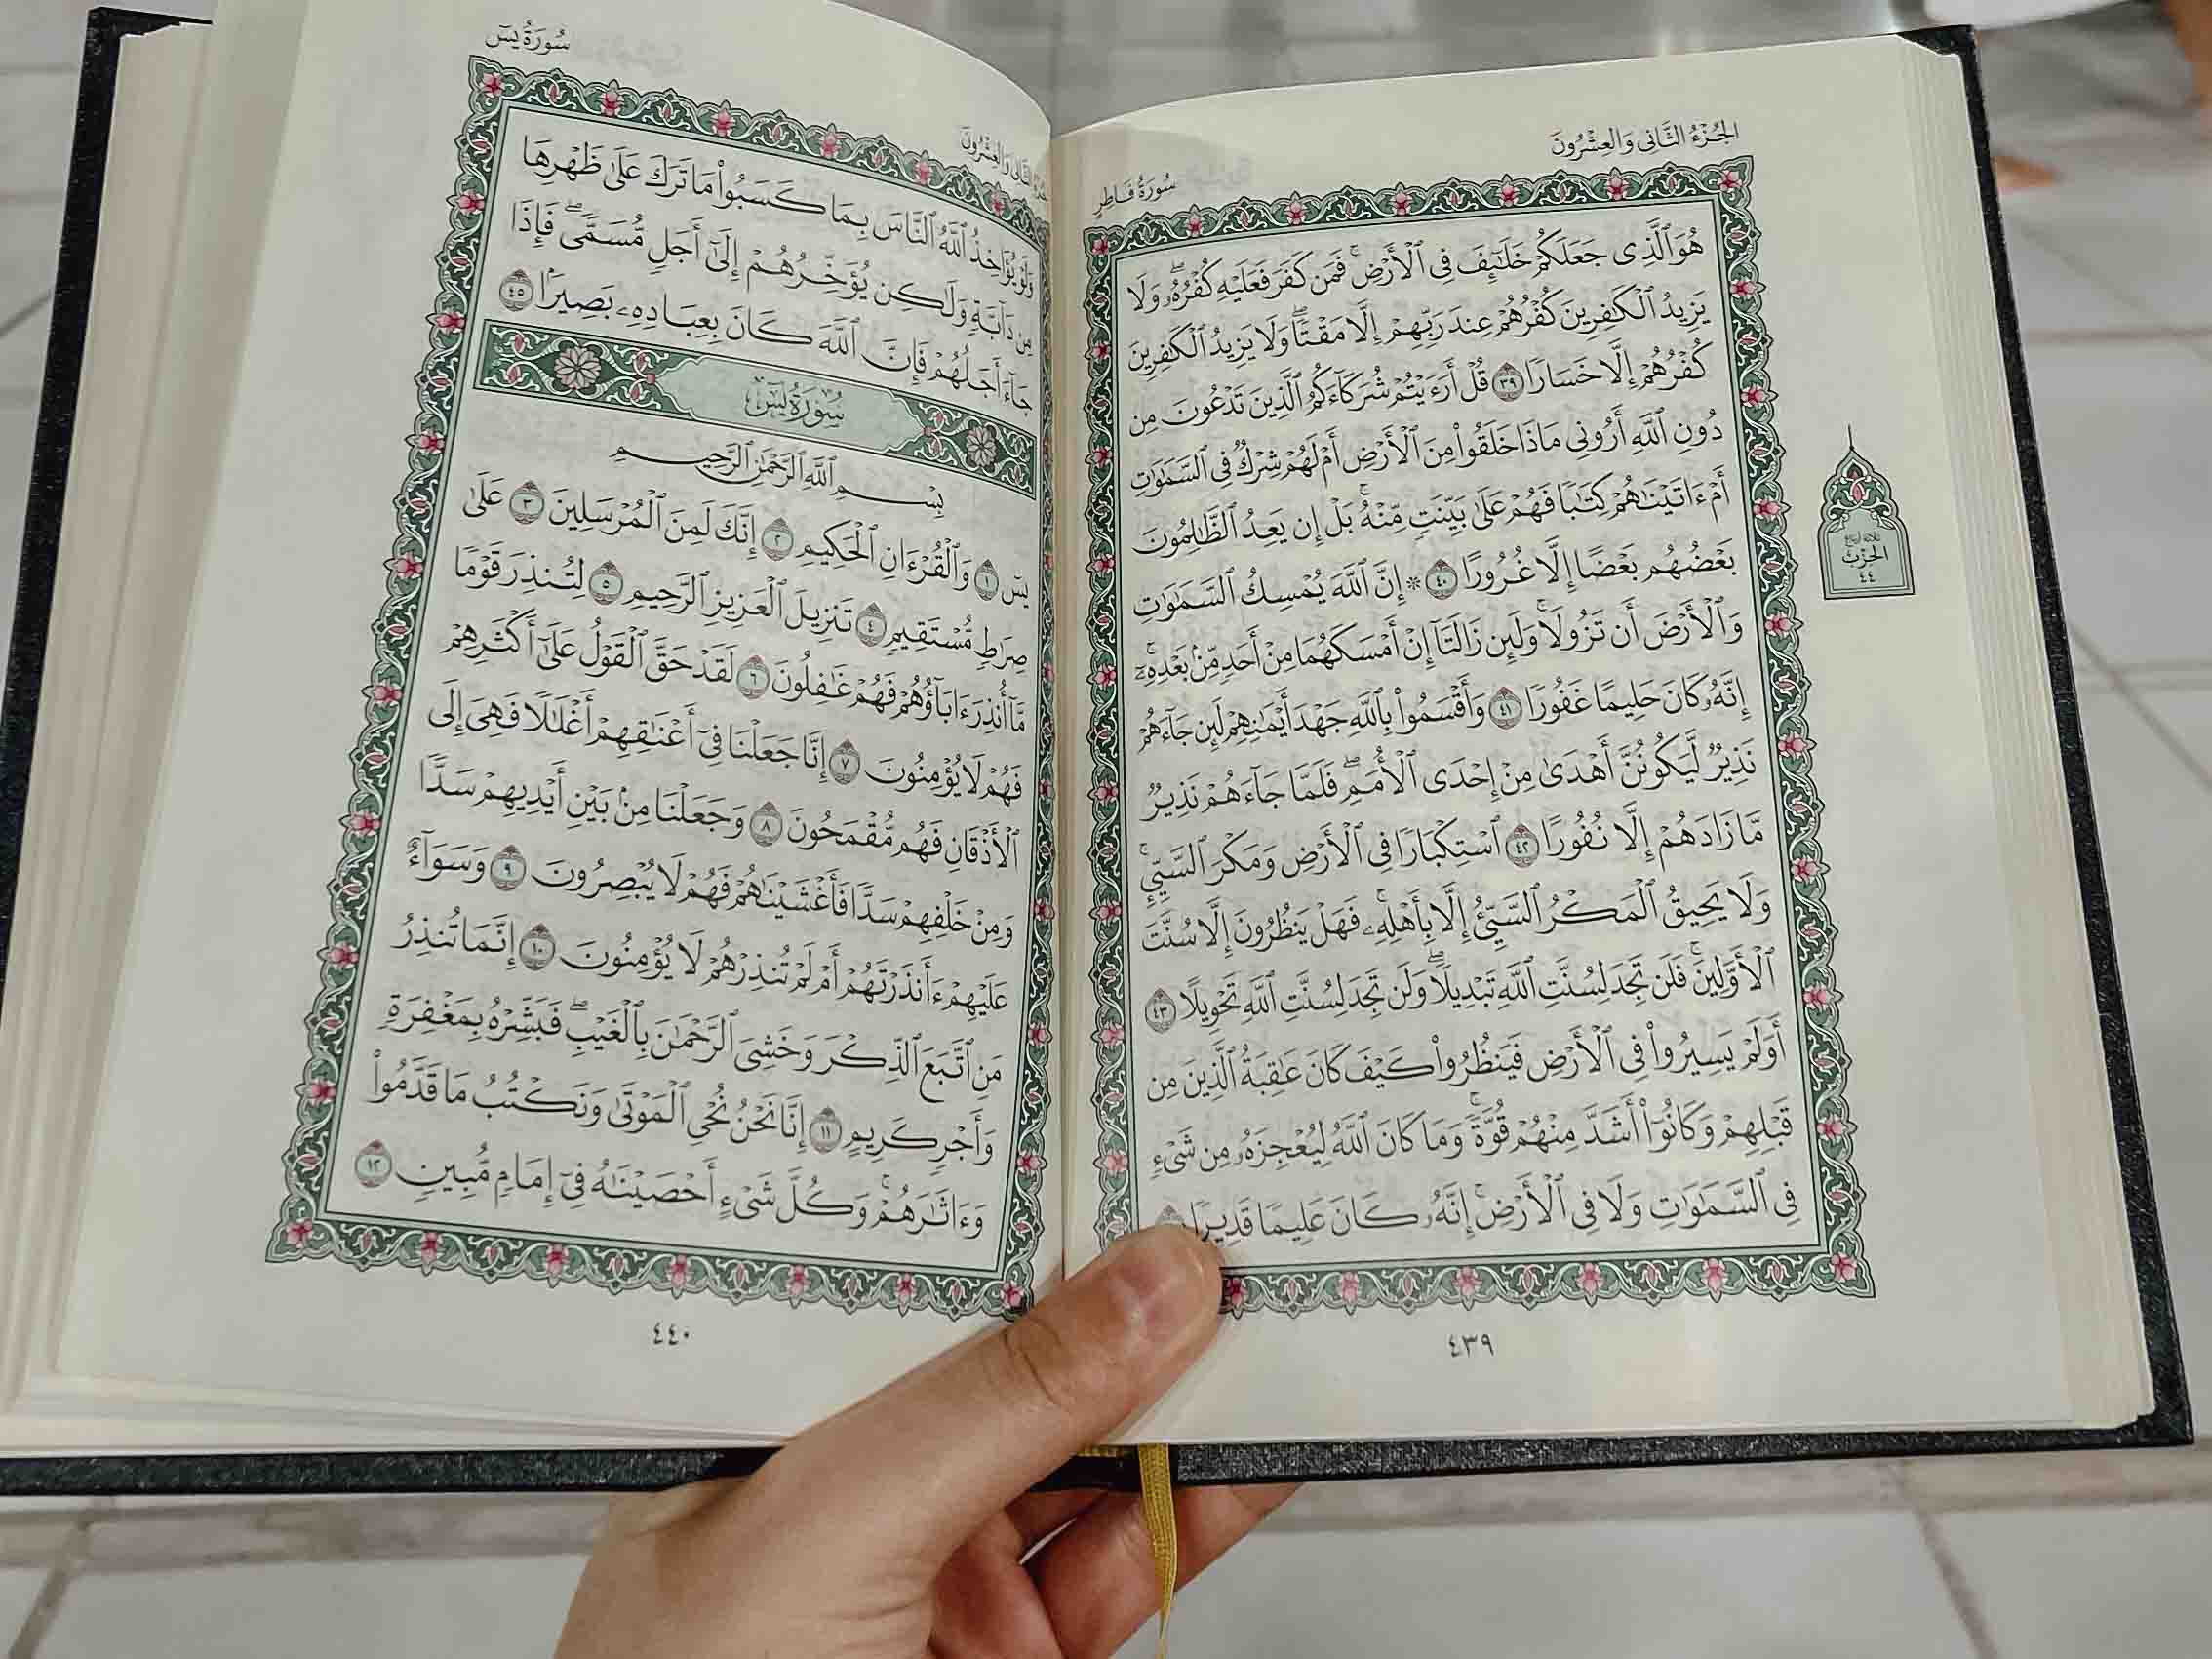 الجُزْءُ الثَّانِي وَالعِشْرُونَ
سُورَةُ فَاطِرٍ
هُوَ ٱلَّذِى جَعَلَكُمْ خَلَـٰٓئِفَ فِى ٱلْأَرْضِ ۚ فَمَن كَفَرَ فَعَلَيْهِ كُفْرُهُۥ ۖ وَلَا
يَزِيدُ ٱلْكَـٰفِرِينَ كُفْرُهُمْ عِندَ رَبِّهِمْ إِلَّا مَقْتًا ۖ وَلَا يَزِيدُ ٱلْكَـٰفِرِينَ
كُفْرُهُمْ إِلَّا خَسَارًا ٣٩ قُلْ أَرَءَيْتُمْ شُرَكَآءَكُمُ ٱلَّذِينَ تَدْعُونَ مِن
دُونِ ٱللَّهِ أَرُونِى مَاذَا خَلَقُوا۟ مِنَ ٱلْأَرْضِ أَمْ لَهُمْ شِرْكٌ فِى ٱلسَّمَـٰوَٰتِ
أَمْ ءَاتَيْنَـٰهُمْ كِتَـٰبًا فَهُمْ عَلَىٰ بَيِّنَتٍ مِّنْهُ ۚ بَلْ إِن يَعِدُ ٱلظَّـٰلِمُونَ
بَعْضُهُم بَعْضًا إِلَّا غُرُورًا ٤٠ ۞ إِنَّ ٱللَّهَ يُمْسِكُ ٱلسَّمَـٰوَٰتِ
وَٱلْأَرْضَ أَن تَزُولَا ۚ وَلَئِن زَالَتَآ إِنْ أَمْسَكَهُمَا مِنْ أَحَدٍ مِّنۢ بَعْدِهِۦٓ ۚ
إِنَّهُۥ كَانَ حَلِيمًا غَفُورًا ٤١ وَأَقْسَمُوا۟ بِٱللَّهِ جَهْدَ أَيْمَـٰنِهِمْ لَئِن جَآءَهُمْ
نَذِيرٌ لَّيَكُونُنَّ أَهْدَىٰ مِنْ إِحْدَى ٱلْأُمَمِ ۖ فَلَمَّا جَآءَهُمْ نَذِيرٌ
مَّا زَادَهُمْ إِلَّا نُفُورًا ٤٢ ٱسْتِكْبَارًا فِى ٱلْأَرْضِ وَمَكْرَ ٱلسَّيِّئِ ۚ
وَلَا يَحِيقُ ٱلْمَكْرُ ٱلسَّيِّئُ إِلَّا بِأَهْلِهِۦ ۚ فَهَلْ يَنظُرُونَ إِلَّا سُنَّتَ
ٱلْأَوَّلِينَ ۚ فَلَن تَجِدَ لِسُنَّتِ ٱللَّهِ تَبْدِيلًا ۖ وَلَن تَجِدَ لِسُنَّتِ ٱللَّهِ تَحْوِيلًا ٤٣
أَوَلَمْ يَسِيرُوا۟ فِى ٱلْأَرْضِ فَيَنظُرُوا۟ كَيْفَ كَانَ عَـٰقِبَةُ ٱلَّذِينَ مِن
قَبْلِهِمْ وَكَانُوٓا۟ أَشَدَّ مِنْهُمْ قُوَّةً ۚ وَمَا كَانَ ٱللَّهُ لِيُعْجِزَهُۥ مِن شَىْءٍ
فِى ٱلسَّمَـٰوَٰتِ وَلَا فِى ٱلْأَرْضِ ۚ إِنَّهُۥ كَانَ عَلِيمًا قَدِيرًا
ثلاثة أرباع
الحِزْب
٤٤
٤٣٩
الثَّانِي وَالعِشْرُونَ
سُورَةُ يسٓ
وَلَوْ يُؤَاخِذُ ٱللَّهُ ٱلنَّاسَ بِمَا كَسَبُوا۟ مَا تَرَكَ عَلَىٰ ظَهْرِهَا
مِن دَآبَّةٍ وَلَـٰكِن يُؤَخِّرُهُمْ إِلَىٰٓ أَجَلٍ مُّسَمًّى ۖ فَإِذَا
جَآءَ أَجَلُهُمْ فَإِنَّ ٱللَّهَ كَانَ بِعِبَادِهِۦ بَصِيرًۢا ٤٥
سُورَةُ يسٓ
بِسْمِ ٱللَّهِ ٱلرَّحْمَـٰنِ ٱلرَّحِيمِ
يسٓ ١ وَٱلْقُرْءَانِ ٱلْحَكِيمِ ٢ إِنَّكَ لَمِنَ ٱلْمُرْسَلِينَ ٣ عَلَىٰ
صِرَٰطٍ مُّسْتَقِيمٍ ٤ تَنزِيلَ ٱلْعَزِيزِ ٱلرَّحِيمِ ٥ لِتُنذِرَ قَوْمًا
مَّآ أُنذِرَ ءَابَآؤُهُمْ فَهُمْ غَـٰفِلُونَ ٦ لَقَدْ حَقَّ ٱلْقَوْلُ عَلَىٰٓ أَكْثَرِهِمْ
فَهُمْ لَا يُؤْمِنُونَ ٧ إِنَّا جَعَلْنَا فِىٓ أَعْنَـٰقِهِمْ أَغْلَـٰلًا فَهِىَ إِلَى
ٱلْأَذْقَانِ فَهُم مُّقْمَحُونَ ٨ وَجَعَلْنَا مِنۢ بَيْنِ أَيْدِيهِمْ سَدًّا
وَمِنْ خَلْفِهِمْ سَدًّا فَأَغْشَيْنَـٰهُمْ فَهُمْ لَا يُبْصِرُونَ ٩ وَسَوَآءٌ
عَلَيْهِمْ ءَأَنذَرْتَهُمْ أَمْ لَمْ تُنذِرْهُمْ لَا يُؤْمِنُونَ ١٠ إِنَّمَا تُنذِرُ
مَنِ ٱتَّبَعَ ٱلذِّكْرَ وَخَشِىَ ٱلرَّحْمَـٰنَ بِٱلْغَيْبِ ۖ فَبَشِّرْهُ بِمَغْفِرَةٍ
وَأَجْرٍ كَرِيمٍ ١١ إِنَّا نَحْنُ نُحْىِ ٱلْمَوْتَىٰ وَنَكْتُبُ مَا قَدَّمُوا۟
وَءَاثَـٰرَهُمْ ۚ وَكُلَّ شَىْءٍ أَحْصَيْنَـٰهُ فِىٓ إِمَامٍ مُّبِينٍ ١٢
٤٤٠